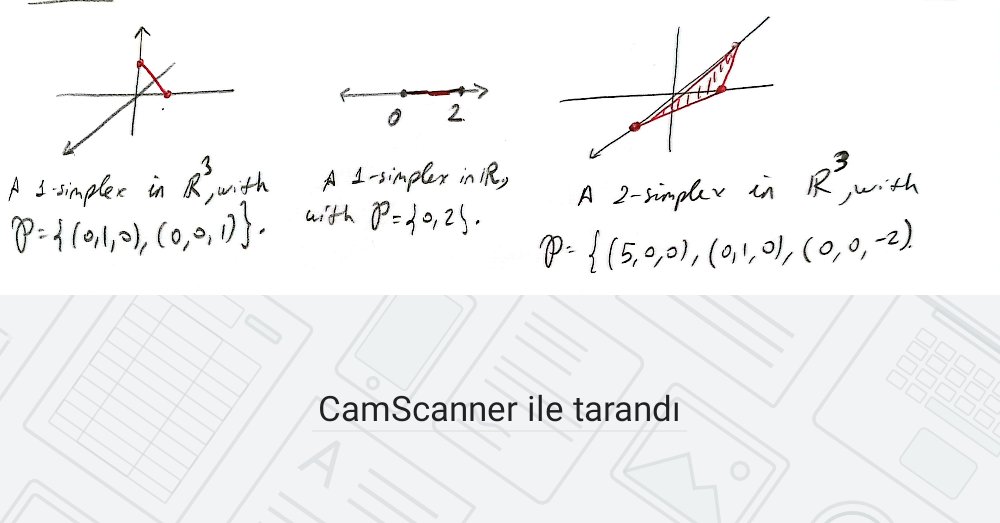 A 1-simplex in ℝ³, with
𝒫={(0,1,0), (0,0,1)}.
0 2
A 1-simplex in ℝ,
with 𝒫={0,2}.
A 2-simplex in ℝ³, with
𝒫= {(5,0,0), (0,1,0), (0,0,-2)
CamScanner ile tarandı